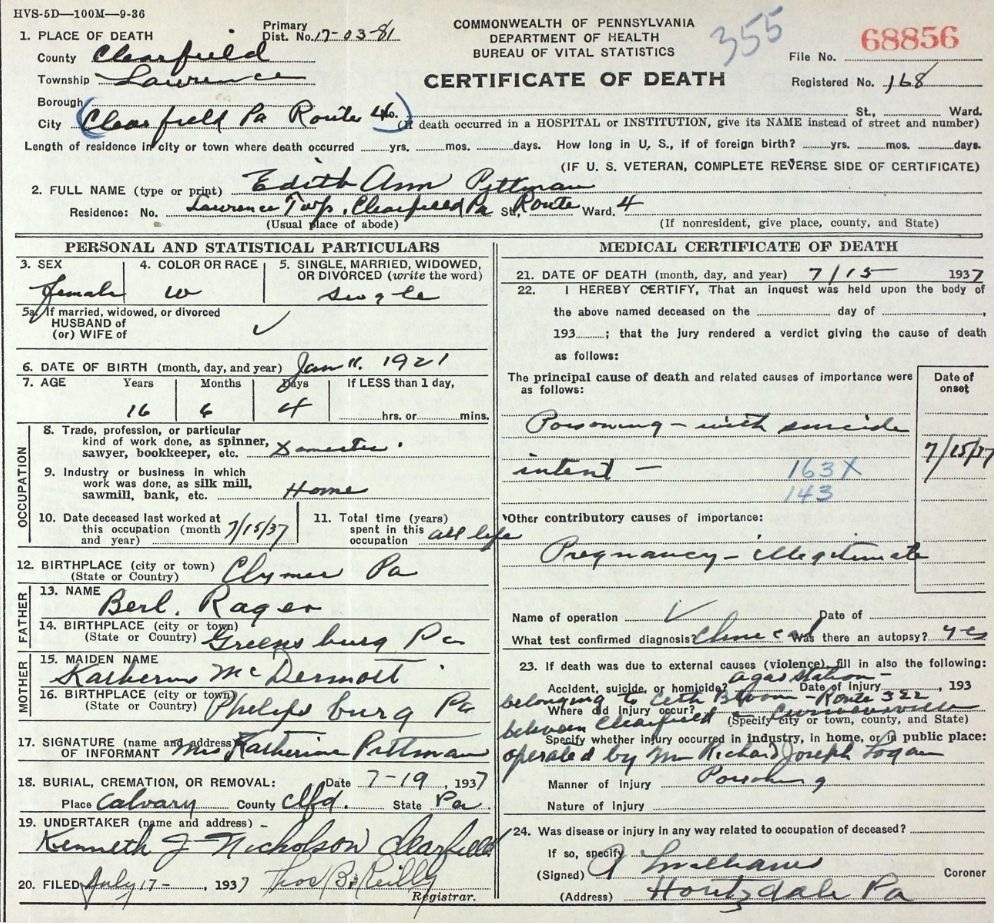 HVS-5D—100M—9-36
COMMONWEALTH OF PENNSYLVANIA
DEPARTMENT OF HEALTH
BUREAU OF VITAL STATISTICS
CERTIFICATE OF DEATH
355
File No. 68856
Registered No. 168
1. PLACE OF DEATH
Primary Dist. No. 17-03-81
County Clearfield
Township Lawrence
Borough
City (Clearfield Pa Route 4) No. St., Ward.
(If death occurred in a HOSPITAL or INSTITUTION, give its NAME instead of street and number)
Length of residence in city or town where death occurred yrs. mos. days. How long in U. S., if of foreign birth? yrs. mos. days.
(IF U. S. VETERAN, COMPLETE REVERSE SIDE OF CERTIFICATE)
2. FULL NAME (type or print) Edith Ann Pittman
Residence: No. Lawrence Twp, Clearfield Pa St. Route Ward. 4
(Usual place of abode) (If nonresident, give place, county, and State)
PERSONAL AND STATISTICAL PARTICULARS
3. SEX 4. COLOR OR RACE 5. SINGLE, MARRIED, WIDOWED,
OR DIVORCED (write the word)
female W single
5a. If married, widowed, or divorced
HUSBAND of
(or) WIFE of ✓
6. DATE OF BIRTH (month, day, and year) Jan 11. 1921
7. AGE Years Months Days If LESS than 1 day,
16 6 4 hrs. or mins.
OCCUPATION
8. Trade, profession, or particular
kind of work done, as spinner,
sawyer, bookkeeper, etc. Domestic
9. Industry or business in which
work was done, as silk mill,
sawmill, bank, etc. Home
10. Date deceased last worked at
this occupation (month
and year) 7/15/37
11. Total time (years)
spent in this
occupation all life
12. BIRTHPLACE (city or town) Clymer Pa
(State or Country)
FATHER
13. NAME Berl. Rager
14. BIRTHPLACE (city or town)
(State or Country) Greensburg Pa
MOTHER
15. MAIDEN NAME
Katherine McDermott
16. BIRTHPLACE (city or town)
(State or Country) Philipsburg Pa
17. SIGNATURE (name and address)
OF INFORMANT Mrs Katherine Pittman
18. BURIAL, CREMATION, OR REMOVAL: Date 7-19, 1937
Place Calvary County Clfd. State Pa.
19. UNDERTAKER (name and address)
Kenneth J Nicholson Clearfield
20. FILED July 17-, 1937 Thos B. Reilly
Registrar.
MEDICAL CERTIFICATE OF DEATH
21. DATE OF DEATH (month, day, and year) 7/15 1937
22. I HEREBY CERTIFY, That an inquest was held upon the body of
the above named deceased on the day of ,
193 ; that the jury rendered a verdict giving the cause of death
as follows:
The principal cause of death and related causes of importance were
as follows:
Date of
onset
Poisoning - with suicide
7/15/37
intent - 163X
143
Other contributory causes of importance:
Pregnancy - illegitimate
Name of operation ✓ Date of
What test confirmed diagnosis? Clinical Was there an autopsy? yes
23. If death was due to external causes (violence), fill in also the following:
Accident, suicide, or homicide? Date of injury , 193
a gas station -
belonging to Bloom - Route 322
Where did injury occur?
between Clearfield - Curwensville
(Specify city or town, county, and State)
Specify whether injury occurred in industry, in home, or in public place:
operated by Mr Richard Joseph Logan
Manner of injury Poisoning
Nature of injury
24. Was disease or injury in any way related to occupation of deceased?
If so, specify
(Signed) Williams Coroner
(Address) Houtzdale Pa